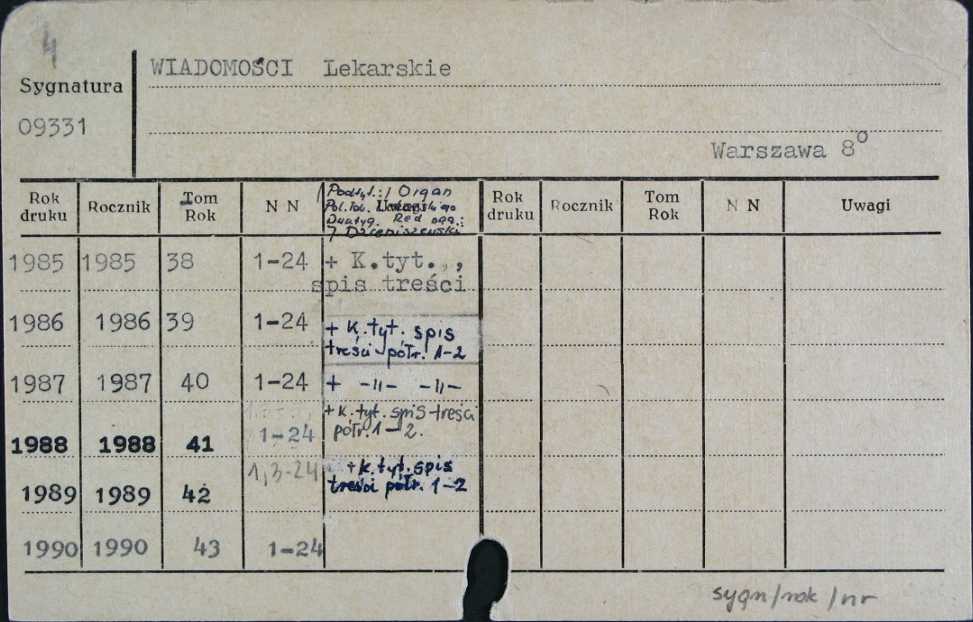 4
WIADOMOŚCI Lekarskie
Sygnatura
09331
Warszawa 8°
Rok druku Rocznik Tom Rok N N Podtyt.: Organ Rok druku Rocznik Tom Rok N N Uwagi
Pol. Tow. Lekarskiego
Red
1985 1985 38 1-24 + K.tyt.,,
spis treści
1986 1986 39 1-24 + K.tyt. spis
treści półr. 1-2
1987 1987 40 1-24 + -"- -"-
+ k. tyt. spis treści
1988 1988 41 1-24 półr. 1-2.
1,3-24 + k. tyt. spis
1989 1989 42 treści półr. 1-2
1990 1990 43 1-24
sygn/rok/nr